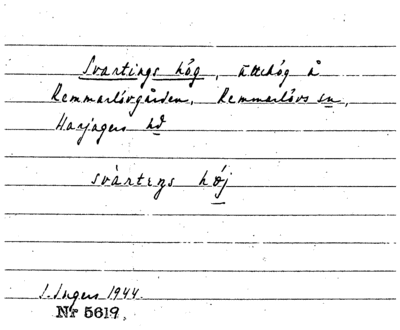 Svartings hög, ättehög å
Remmarlövgården, Remmarlövs sn,
Harjagers hd
svàrtiŋs hǿj
I. Ingers 1944.
Nr 5619.